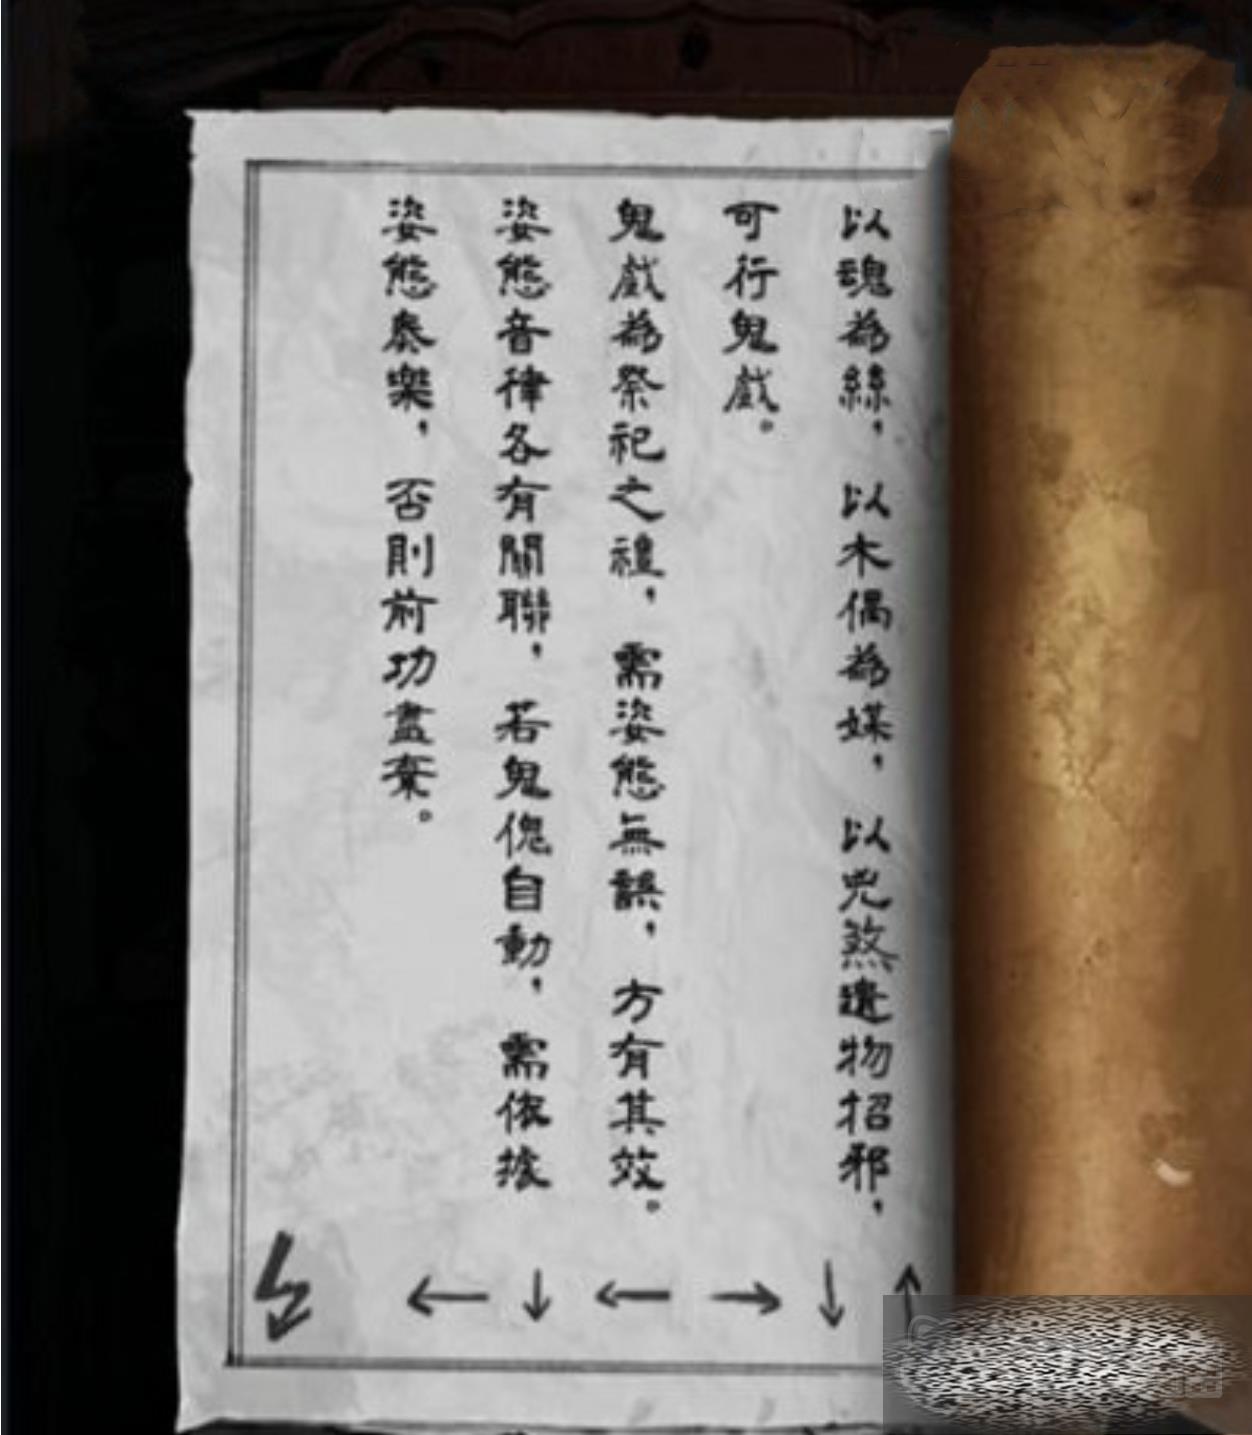 以魂為絲，以木偶為媒，以兇煞遺物招邪，
可行鬼戲。
鬼戲為祭祀之禮，需姿態無誤，方有其效。
姿態音律各有關聯，若鬼傀自動，需依據
姿態奏樂，否則前功盡棄。
↑ ↓ → ← ↓ ←